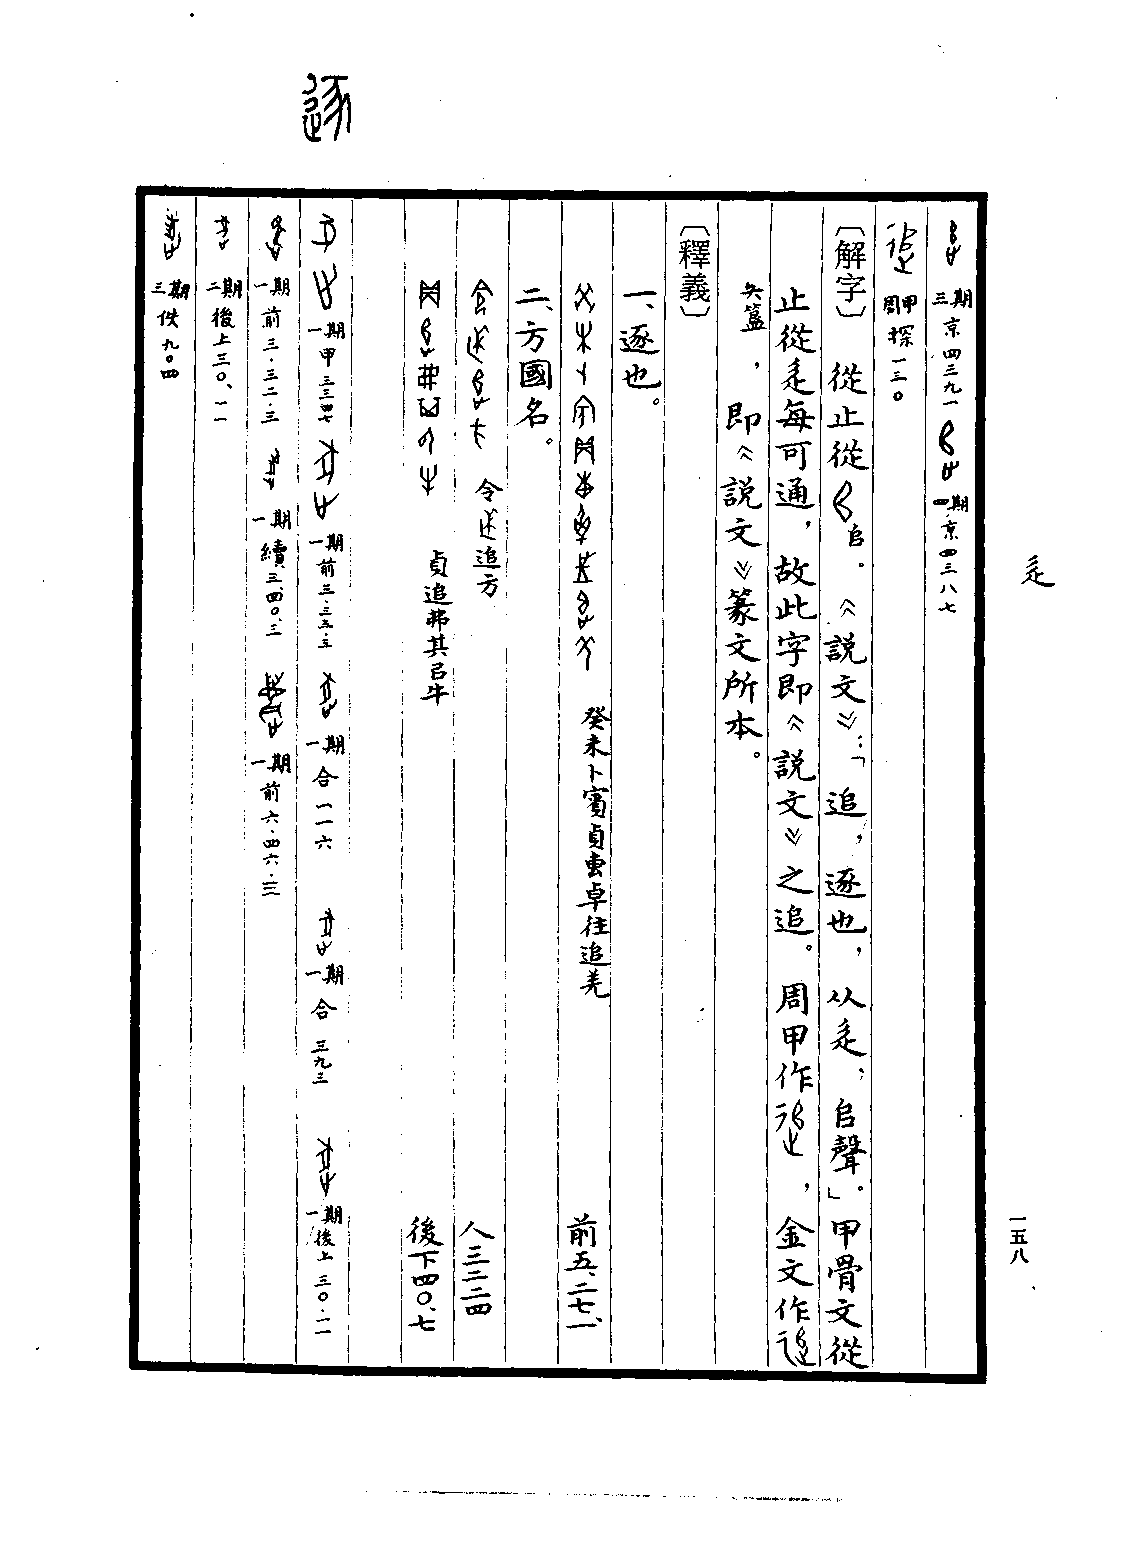 三期 京四三九一 四期 京四三八七
周甲 探一三〇
〔解字〕 從止從𠂤。《說文》：「追，逐也，从辵，𠂤聲。」甲骨文從
止從辵每可通，故此字即《說文》之追。周甲作 ，金文作
矢簋，即《說文》篆文所本。
〔釋義〕
一、逐也。
癸未卜賓貞 往追羌 前五、二七、一
二、方國名。
令 追方 人三二二四
貞追弗其㠯牛 後下四〇、七
一期 甲三三四七 一期 前三·三三·三 一期 合一一六 一期 合三九三 一期 後上三〇·一一
一期 前三·三二·三 一期 續三、四〇、三 一期 前六·四六·三
二期 後上三〇、一一
三期 佚九〇四
逐
辵
一五八